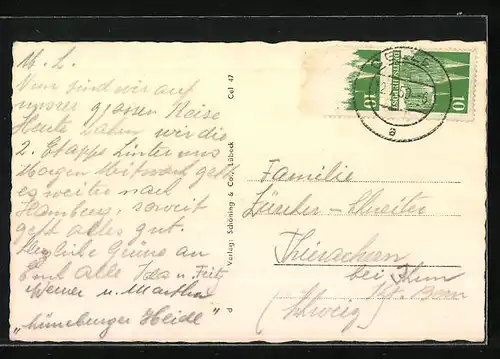 M. L.
Nun sind wir auf
unserer grossen Reise
Heute haben wir die
2. Etappe hinter uns
Morgen Mittwoch geht
es weiter nach
Hamburg, soweit
geht alles gut.
Herzliche Grüsse an
Euch alle Ida u. Fritz
Werner u. Martha
"Lüneburger Heide"
Verlag: Schöning & Co., Lübeck
Cel 47
10
10
CELLE
Familie
Lüscher-Schneiter
Thierachern
bei Thun
Kt. Bern
Schweiz